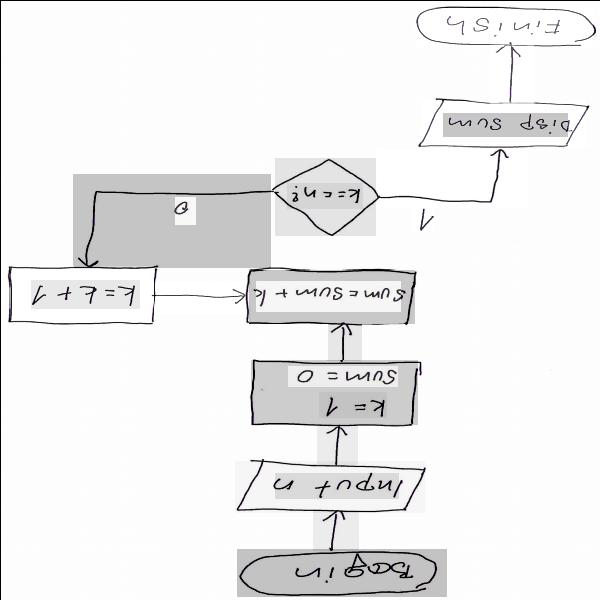 Begin
Input n
k = 1
sum = 0
sum = sum + k
k = k + 1
k == n?
0
1
Disp sum
Finish